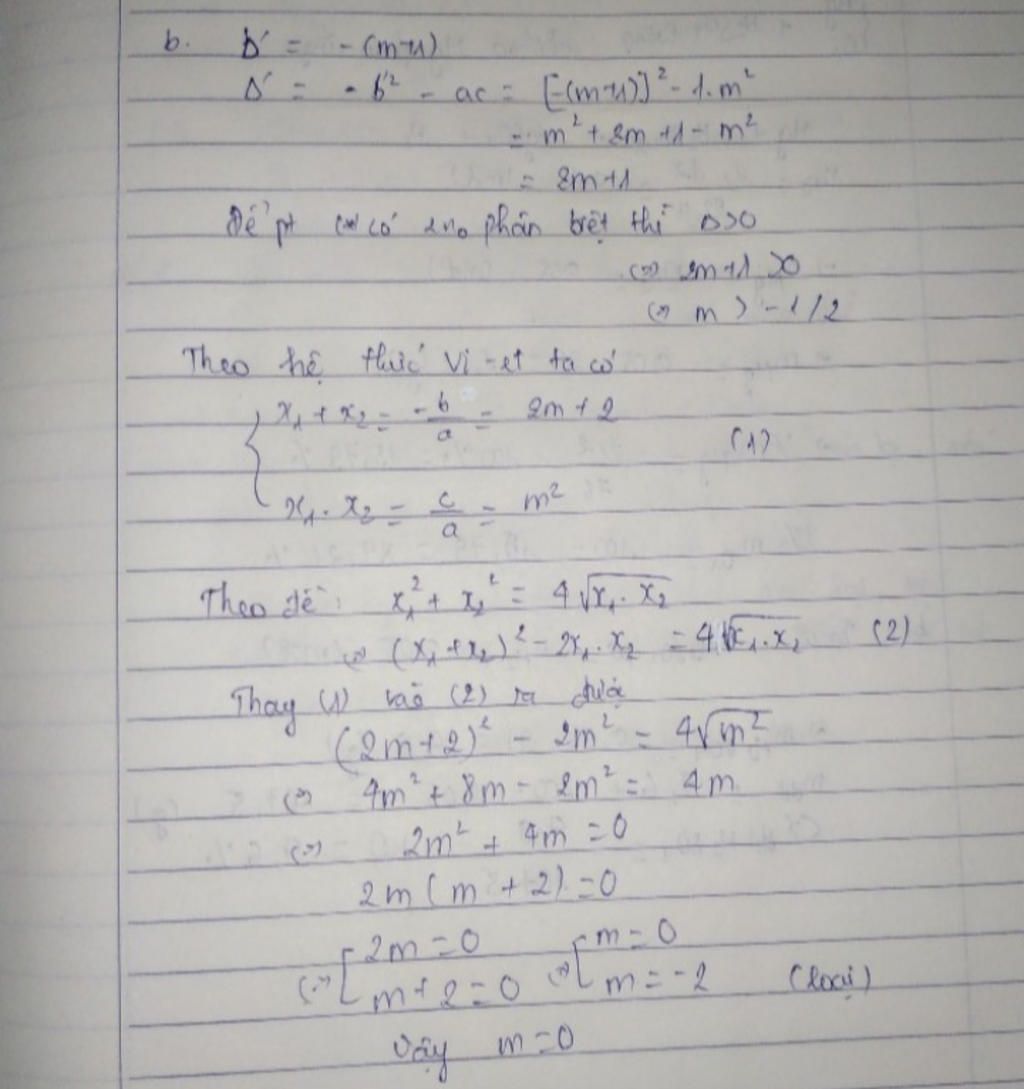 b. b' = -(m+1)
Δ' = - b'² - ac = [-(m+1)]² - 1.m²
= m² + 2m +1 - m²
= 2m+1
Để pt (*) có 2 no phân biệt thì Δ>0
(=) 2m+1 >0
(=) m > -1/2
Theo hệ thức Vi-et ta có
x₁ + x₂ = -b/a = 2m + 2
(1)
x₁. x₂ = c/a = m²
Theo đề: x₁² + x₂² = 4√x₁. x₂
(=) (x₁ + x₂)² - 2x₁. x₂ = 4√x₁. x₂ (2)
Thay (1) vào (2) ta được
(2m+2)² - 2m² = 4√m²
(=) 4m² + 8m - 2m² = 4m
(=) 2m² + 4m = 0
2m ( m + 2) = 0
(=) [ 2m = 0 (=) [ m = 0
m + 2 = 0 m = -2 (loại)
Vậy m = 0